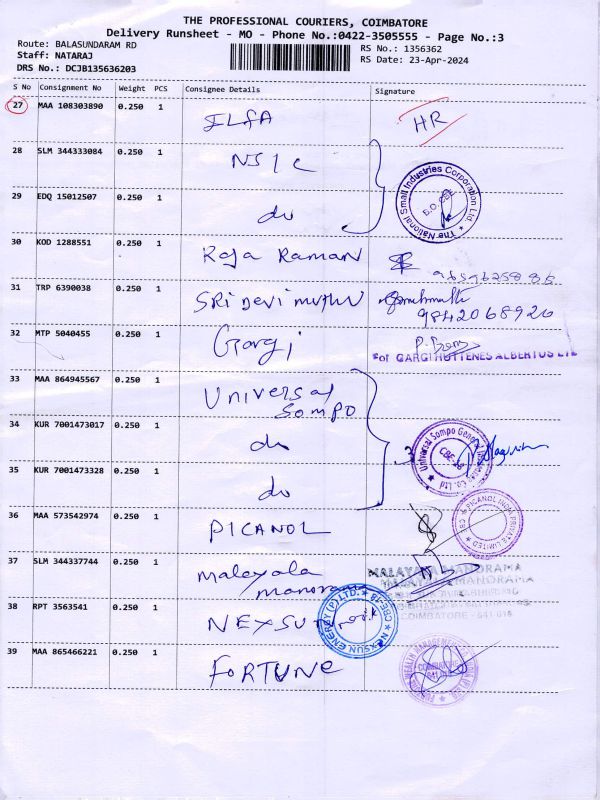 THE PROFESSIONAL COURIERS, COIMBATORE
Delivery Runsheet - MO - Phone No.:0422-3505555 - Page No.:3
Route: BALASUNDARAM RD
Staff: NATARAJ
DRS No.: DCJB135636203
RS No.: 1356362
RS Date: 23-Apr-2024
S No Consignment No Weight PCS Consignee Details Signature
27 MAA 108303890 0.250 1 ILFA HR
28 SLM 344333084 0.250 1 NSIC
The National Small Industries Corporation Ltd.
29 EDQ 15012507 0.250 1 do
30 KOD 1288551 0.250 1 Raja Raman
31 TRP 6390038 0.250 1 SRIDevi muthu
9842068920
32 MTP 5040455 0.250 1 Gargi
For GARGI HUTTENES ALBERTUS
33 MAA 864945567 0.250 1 Universal
Sompo
34 KUR 7001473017 0.250 1 do
Universal Sompo
35 KUR 7001473328 0.250 1 do
36 MAA 573542974 0.250 1 PICANOL
PICANOL INDIA PRIVATE LIMITED
37 SLM 344337744 0.250 1 Malayala
manorama
MALAYALA MANORAMA
COIMBATORE - 641 018
38 RPT 3563541 0.250 1 NEXSUN
NEXSUN ENERGY (P) LTD. CBE-18
39 MAA 865466221 0.250 1 FORTUNE